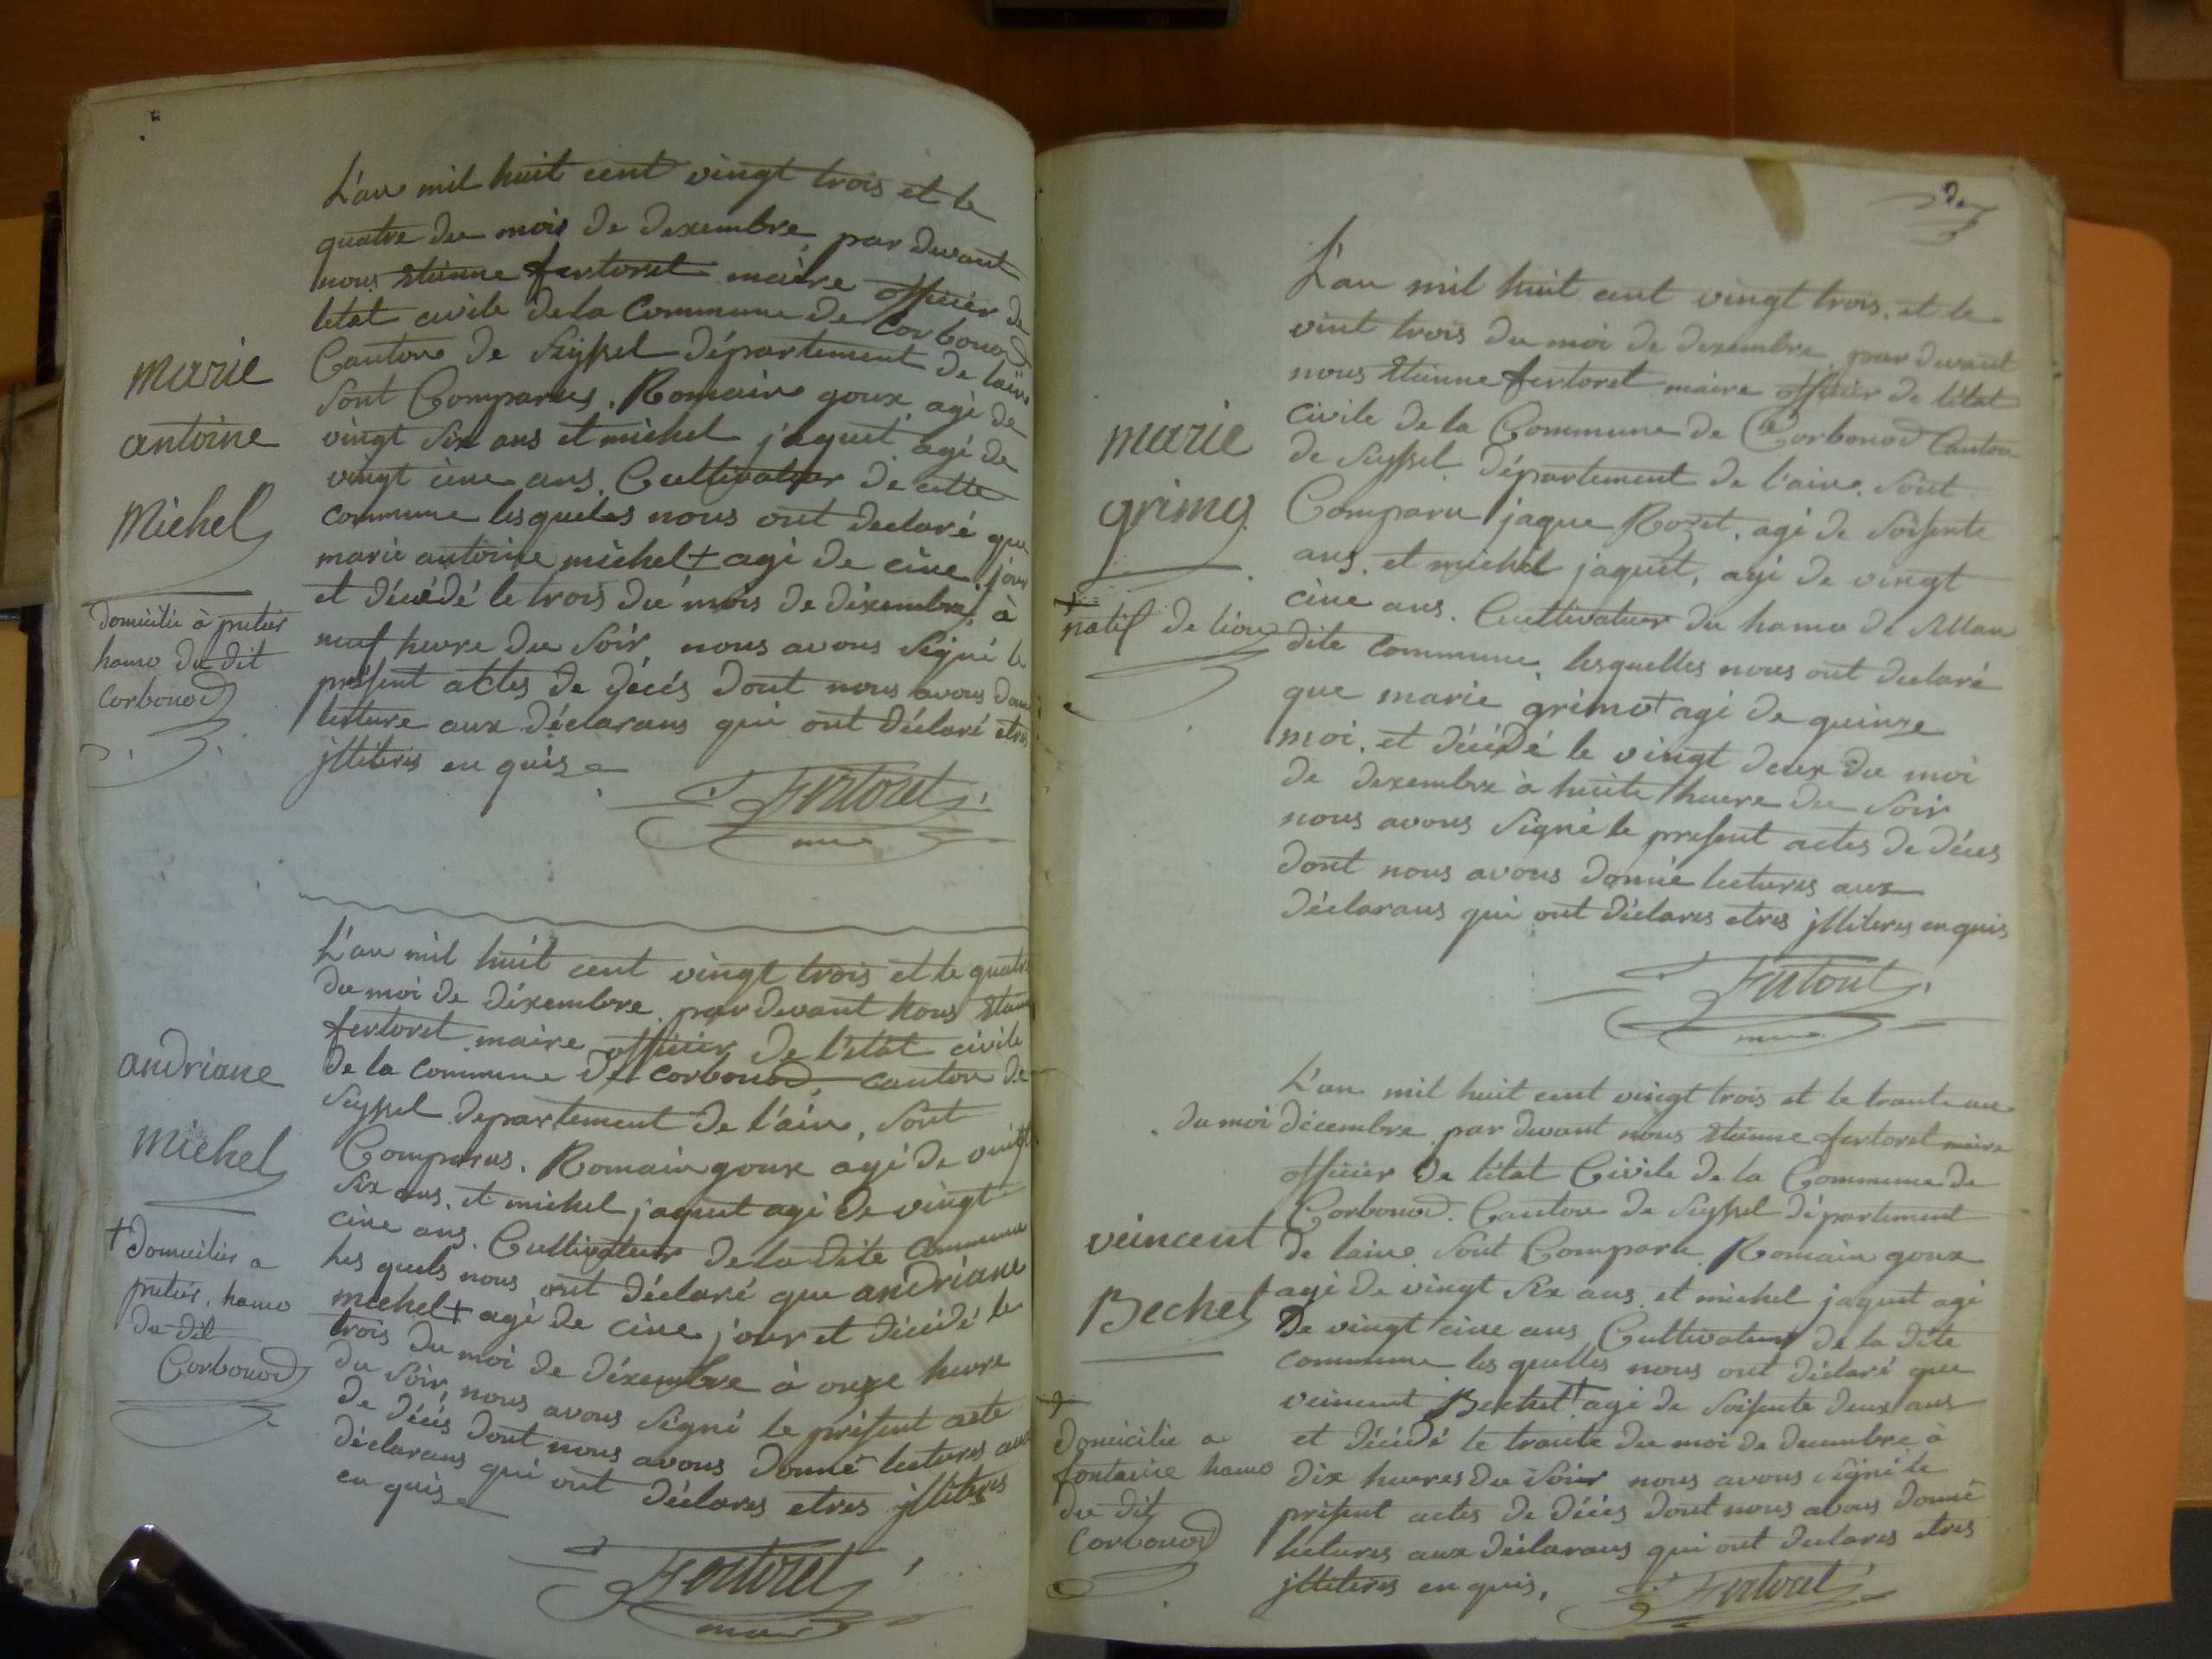 L'an mil huit cent vingt trois et le
quatre du mois de dexembre par devant
nous etienne fertoret maire officier de
letat civile de la Commune de Corbonod
Canton de Seyssel département de laire
sont Comparus. Romain goux agé de
vingt six ans et michel jaquet agé de
vingt cinc ans. Cultivateur de cette
commune lesqueles nous ont declaré que
marie antoine michel + agé de cinc jour
et décédé le trois du mois de dexembre à
neuf heure du soir, nous avons signé le
present actes de décés dont nous avons donné
letture aux déclarans qui ont déclaré etres
illiteres en quis
Fertoret
marie
antoine
Michel
domicilie à putier
hamo du dit
Corbonod
L'an mil huit cent vingt trois et le quatre
du moi de déxembre par devant nous etienne
fertoret maire officier de l'etat civile
de la commune de corbonod, canton de
Seyssel departement de l'ain, sont
Comparus. Romain goux agé de vingt
six ans. et michel jaquet agé de vingt
cinc ans. Cultivateur de la dite Commune
les quels nous ont déclaré que andriane
michel + agé de cinc jour et décédé le
trois du moi de déxembre à onze heure
du soir, nous avons signé le présent acte
de décés dont nous avons donné lectures aux
déclarans qui ont déclares etres illiteres
en quis
Fertoret
andriane
Michel
+ domicilier a
putier, hamo
du dit
Corbonod
L'an mil huit cent vingt trois, et le
vint trois du moi de dexembre par devant
nous etienne fertoret maire officier de l'état
civile de la Commune de Corbonod Canton
de Seyssel département de l'aire. sont
Comparu jaque Rozet, agé de soisente
ans. et michel jaquet, agé de vingt
cinc ans. Cultivateur du hamo de
dite commune, lesquelles nous ont declaré
que marie grimo + agé de quinze
moi, et décédé le vingt deux du moi
de dexembre à huite heure du soir
nous avons signé le present actes de déces
dont nous avons donnée lectures aux
déclarans qui ont déclares etres illiteres en quis
Fertoret
marie
grimo
+
natif de lion
L'an mil huit cent vingt trois et le trante un
du moi décembre par devant nous etienne fertoret maire
officier de létat Civile de la Commune de
Corbonod. Canton de Seyssel département
de laire sont Compara Romain goux
agé de vingt six ans et michel jaquet agé
De vingt cinc ans Cultivateur de la dite
commune les quelles nous ont déclaré que
veincent Bechet + agé de soisente deux ans
et décédé le trante du moi de decembre à
dix heures du soir nous avons signé le
présent actes de décés dont nous avons donné
lectures aux déclarans qui ont declares etres
illiteres en quis,
Fertoret
veincent
Bechet
+
domicilie a
fontaine hamo
du dit
Corbonod